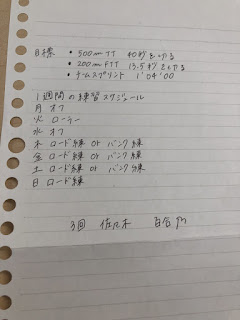 目標 ・500m TT 40秒をきる
・200m FTT 13.5秒をきる
・チームスプリント 1'04'00
1週間の練習スケジュール
月 オフ
火 ローラー
水 オフ
木 ロード練 or バンク練
金 ロード練 or バンク練
土 ロード練 or バンク練
日 ロード練
3回 佐々木